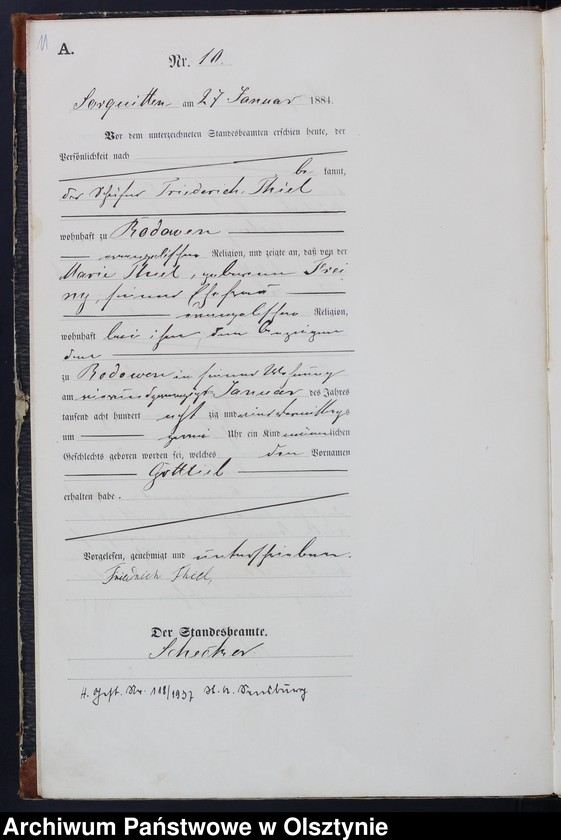 11
A.
Nr. 10.
Sorquitten am 27 Januar 1884.
Vor dem unterzeichneten Standesbeamten erschien heute, der
Persönlichkeit nach
be kannt,
der Friederich Thiel
wohnhaft zu Rodowen
evangelischer Religion, und zeigte an, daß von der
Marie Thiel, geborenen
seiner Ehefrau
evangelischer Religion,
wohnhaft bei ihm, dem Anzeigen
den
zu Rodowen in seiner Wohnung
am vierundzwanzigsten Januar des Jahres
tausend acht hundert acht zig und vier Vormittags
um Uhr ein Kind männlichen
Geschlechts geboren worden sei, welches den Vornamen
Gottlieb
erhalten habe.
Vorgelesen, genehmigt und unterschrieben.
Friedrich Thiel,
Der Standesbeamte.
H. Nr. 118/1937 St. A. Sensburg
Archiwum Państwowe w Olsztynie